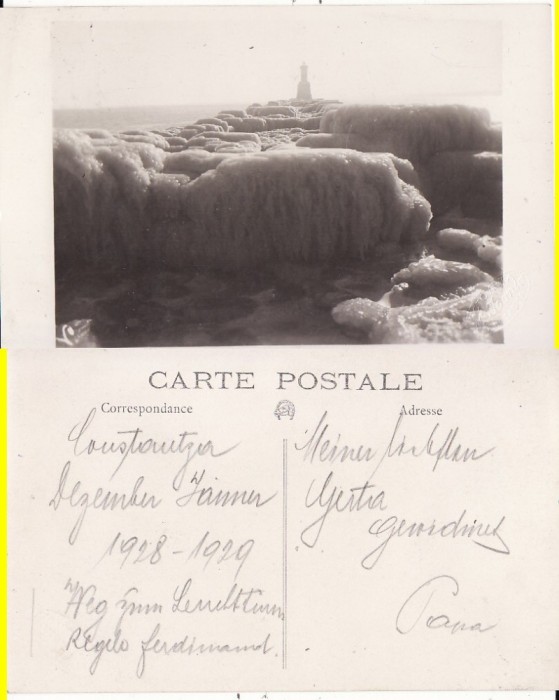 CARTE POSTALE
Correspondance
Adresse
Constantza
Dezember Jänner
1928-1929
Weg zum Leuchtturm
Regele Ferdinand.
Meiner liebsten
Gerta
gewidmet
Papa